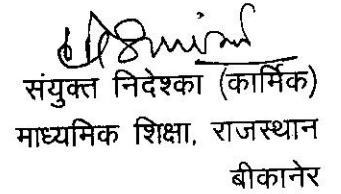 संयुक्त निदेश्का (कार्मिक)
माध्यमिक शिक्षा, राजस्थान
बीकानेर